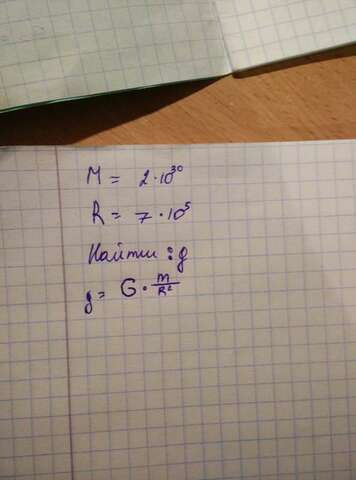 M = 2·10³⁰
R = 7·10⁵
Найти: g
g = G · m/R²